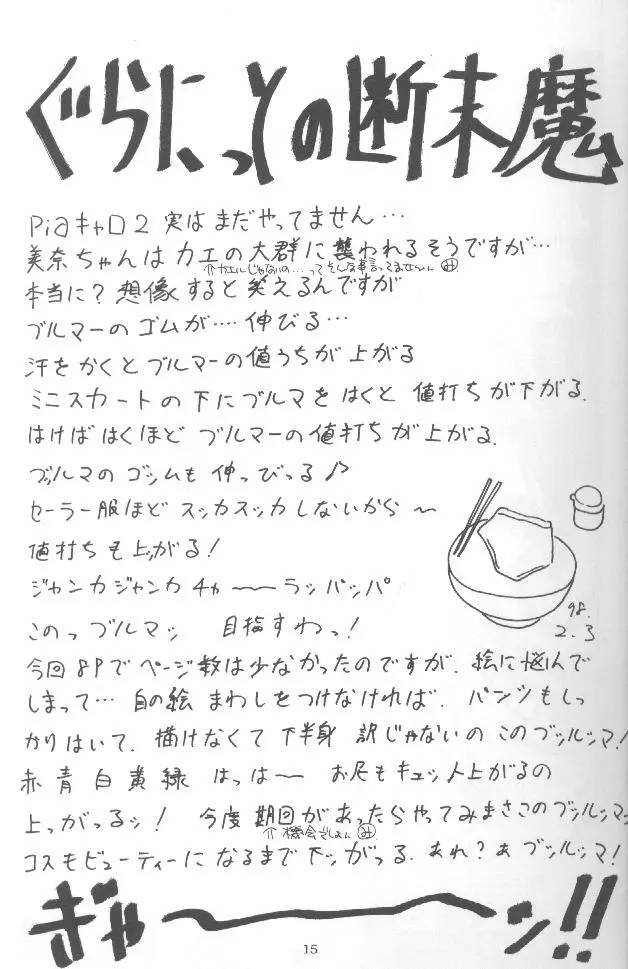 ぐらにっとの断末魔
Piaキャロ2 実はまだやってません…
美奈ちゃんは カエの大群に襲われるそうですが…
⇑カエルじゃないの…ってそんな事言ってませんん
本当に？想像すると笑えるんですが
ブルマーのゴムが…. 伸びる…
汗をかくとブルマーの値うちが上がる
ミニスカートの下にブルマをはくと 値打ちが下がる.
はけばはくほど ブルマーの値打ちが上がる.
ブッルマの ゴッムも 伸っびっる♪
セーラー服ほど スッカスッカしないから〜
値打ちも上ッがる!
ジャンカジャンカ チャ〜〜ラッパッパ
このっブルマッ 目指すわっ!
98.
2.3
今回8Pで ページ数は少なかったのですが. 絵に悩んで
しまって… 自の絵 まわしをつけなければ. パンツもしっ
かりはいて. 描けなくて 下半身 訳じゃないの このブッルッマ!
赤 青 白 黄 緑 はっは〜 お尻もキュット上がるの
上っがっるッ! 今度 期回があったらやってみまさこのブッルッマッ
⇑機会でしょん
コスモビューティーになるまで 下ッがっる. あれ？ あ ブッルッマ!
ぎゃ〜〜ン!!
15